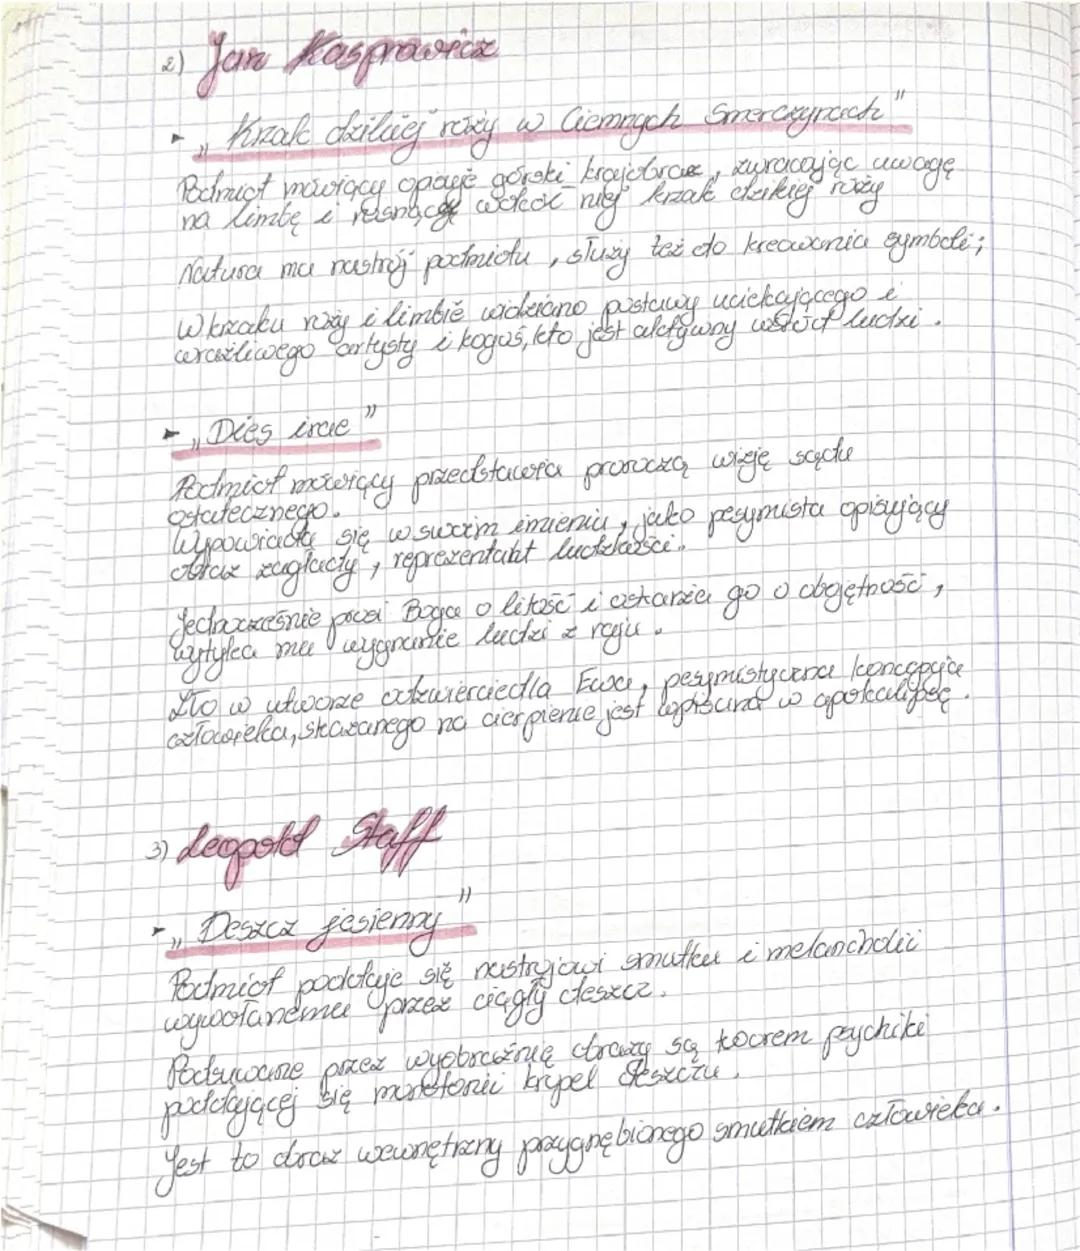 2) Jan Kasprowicz
- „Krzak dzikiej róży w Ciemnych Smreczynach"
Podmiot mówiący opisuje górski krajobraz, zwracając uwagę
na limbę i rosnący wokół niej krzak dzikiej róży
Natura ma nastrój podmiotu, służy też do kreowania symboli;
W krzaku róży i limbie widziano postawy uciekającego i
wrażliwego artysty i kogoś, kto jest aktywny wśród ludzi.
- „Dies irae"
Podmiot mówiący przedstawia proroczą wizję sądu
ostatecznego.
Wypowiada się w swoim imieniu, jako pesymista opisujący
obraz zagłady, reprezentant ludzkości.
Jednocześnie prosi Boga o litość i oskarża go o obojętność,
wytyka mu wygnanie ludzi z raju.
Zło w utworze odzwierciedla Ewa, pesymistyczna koncepcja
człowieka, skazanego na cierpienie jest wpisana w apokalipsę.
3) Leopold Staff
- „Deszcz jesienny"
Podmiot poddaje się nastrojowi smutku i melancholii
wywołanemu przez ciągły deszcz.
Podsuwane przez wyobraźnię obrazy są tworem psychiki
poddającej się monotonii kropel deszczu.
Jest to obraz wewnętrzny przygnębionego smutkiem człowieka.